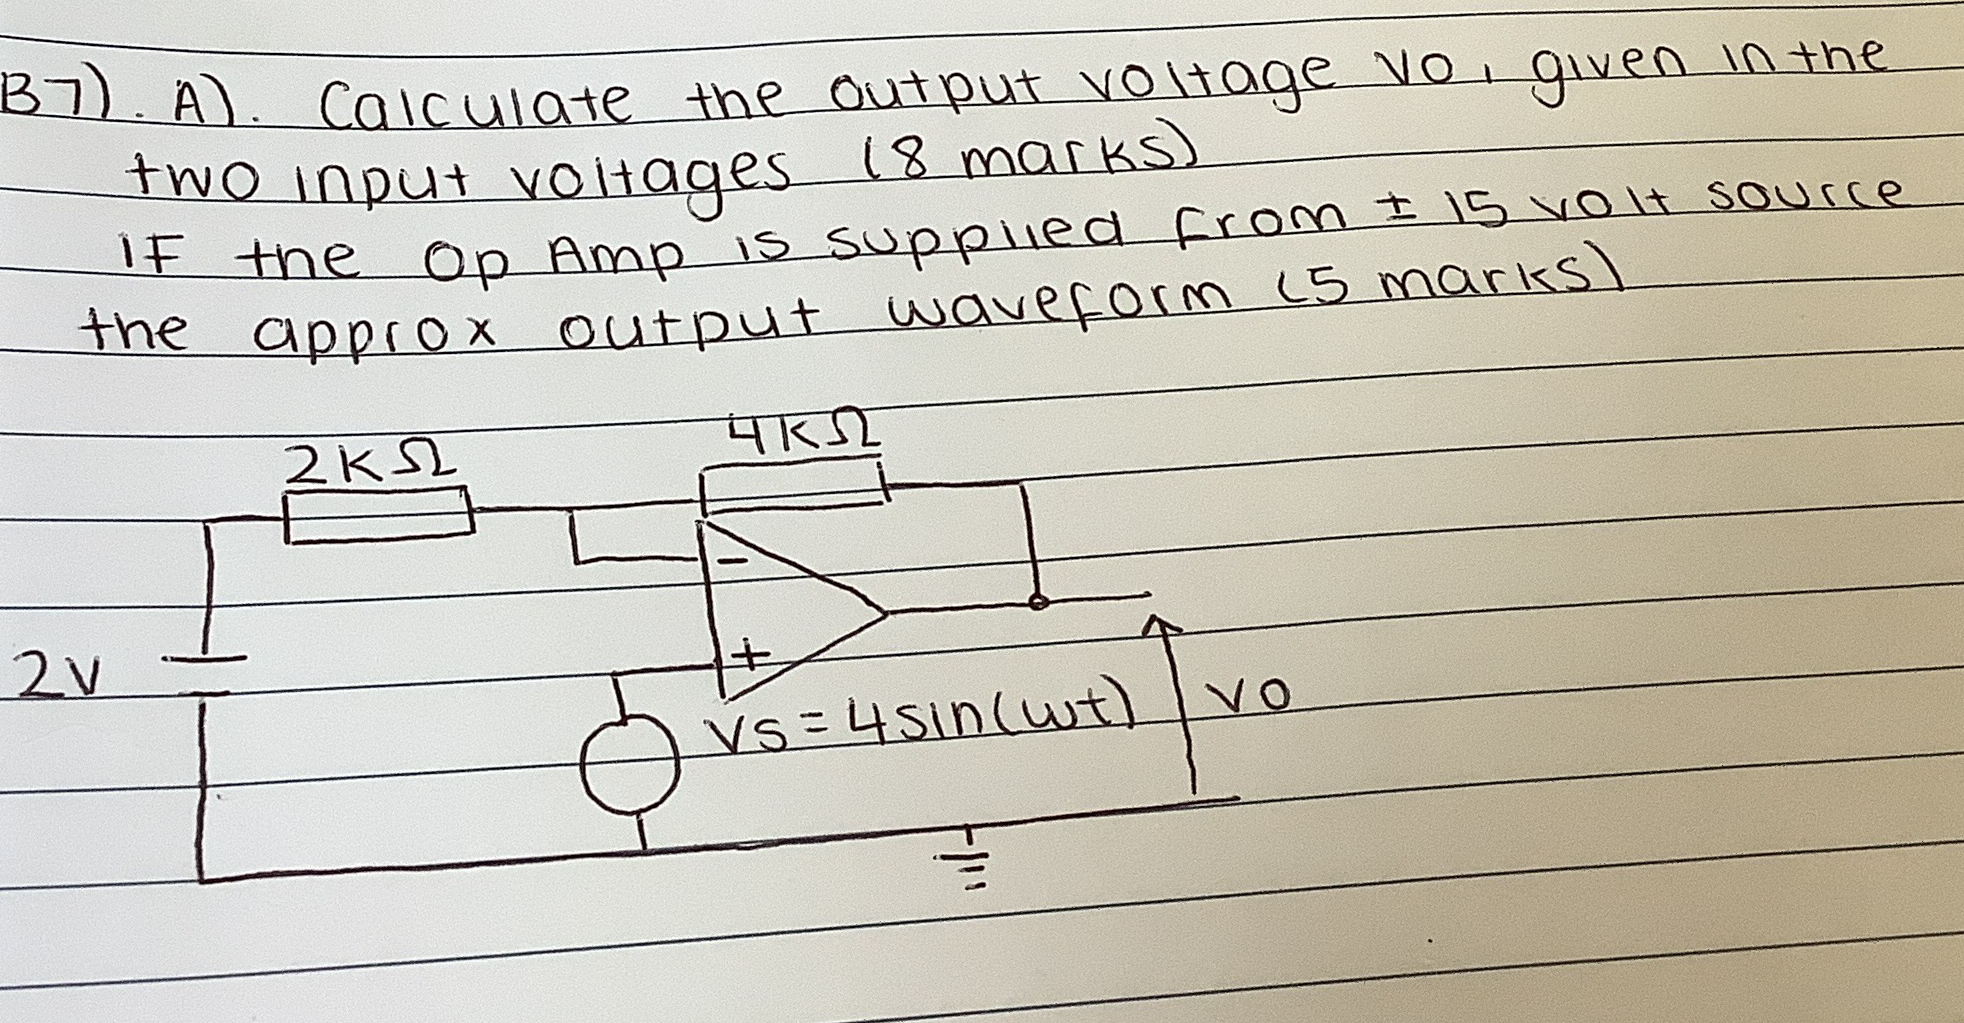 B7). A). Calculate the output voltage vo, given in the
two input voltages (8 marks)
IF the Op Amp is supplied from ± 15 volt source
the approx output waveform (5 marks)
2KΩ
4KΩ
-
2V
+
VS=4sin(ωt)
VO